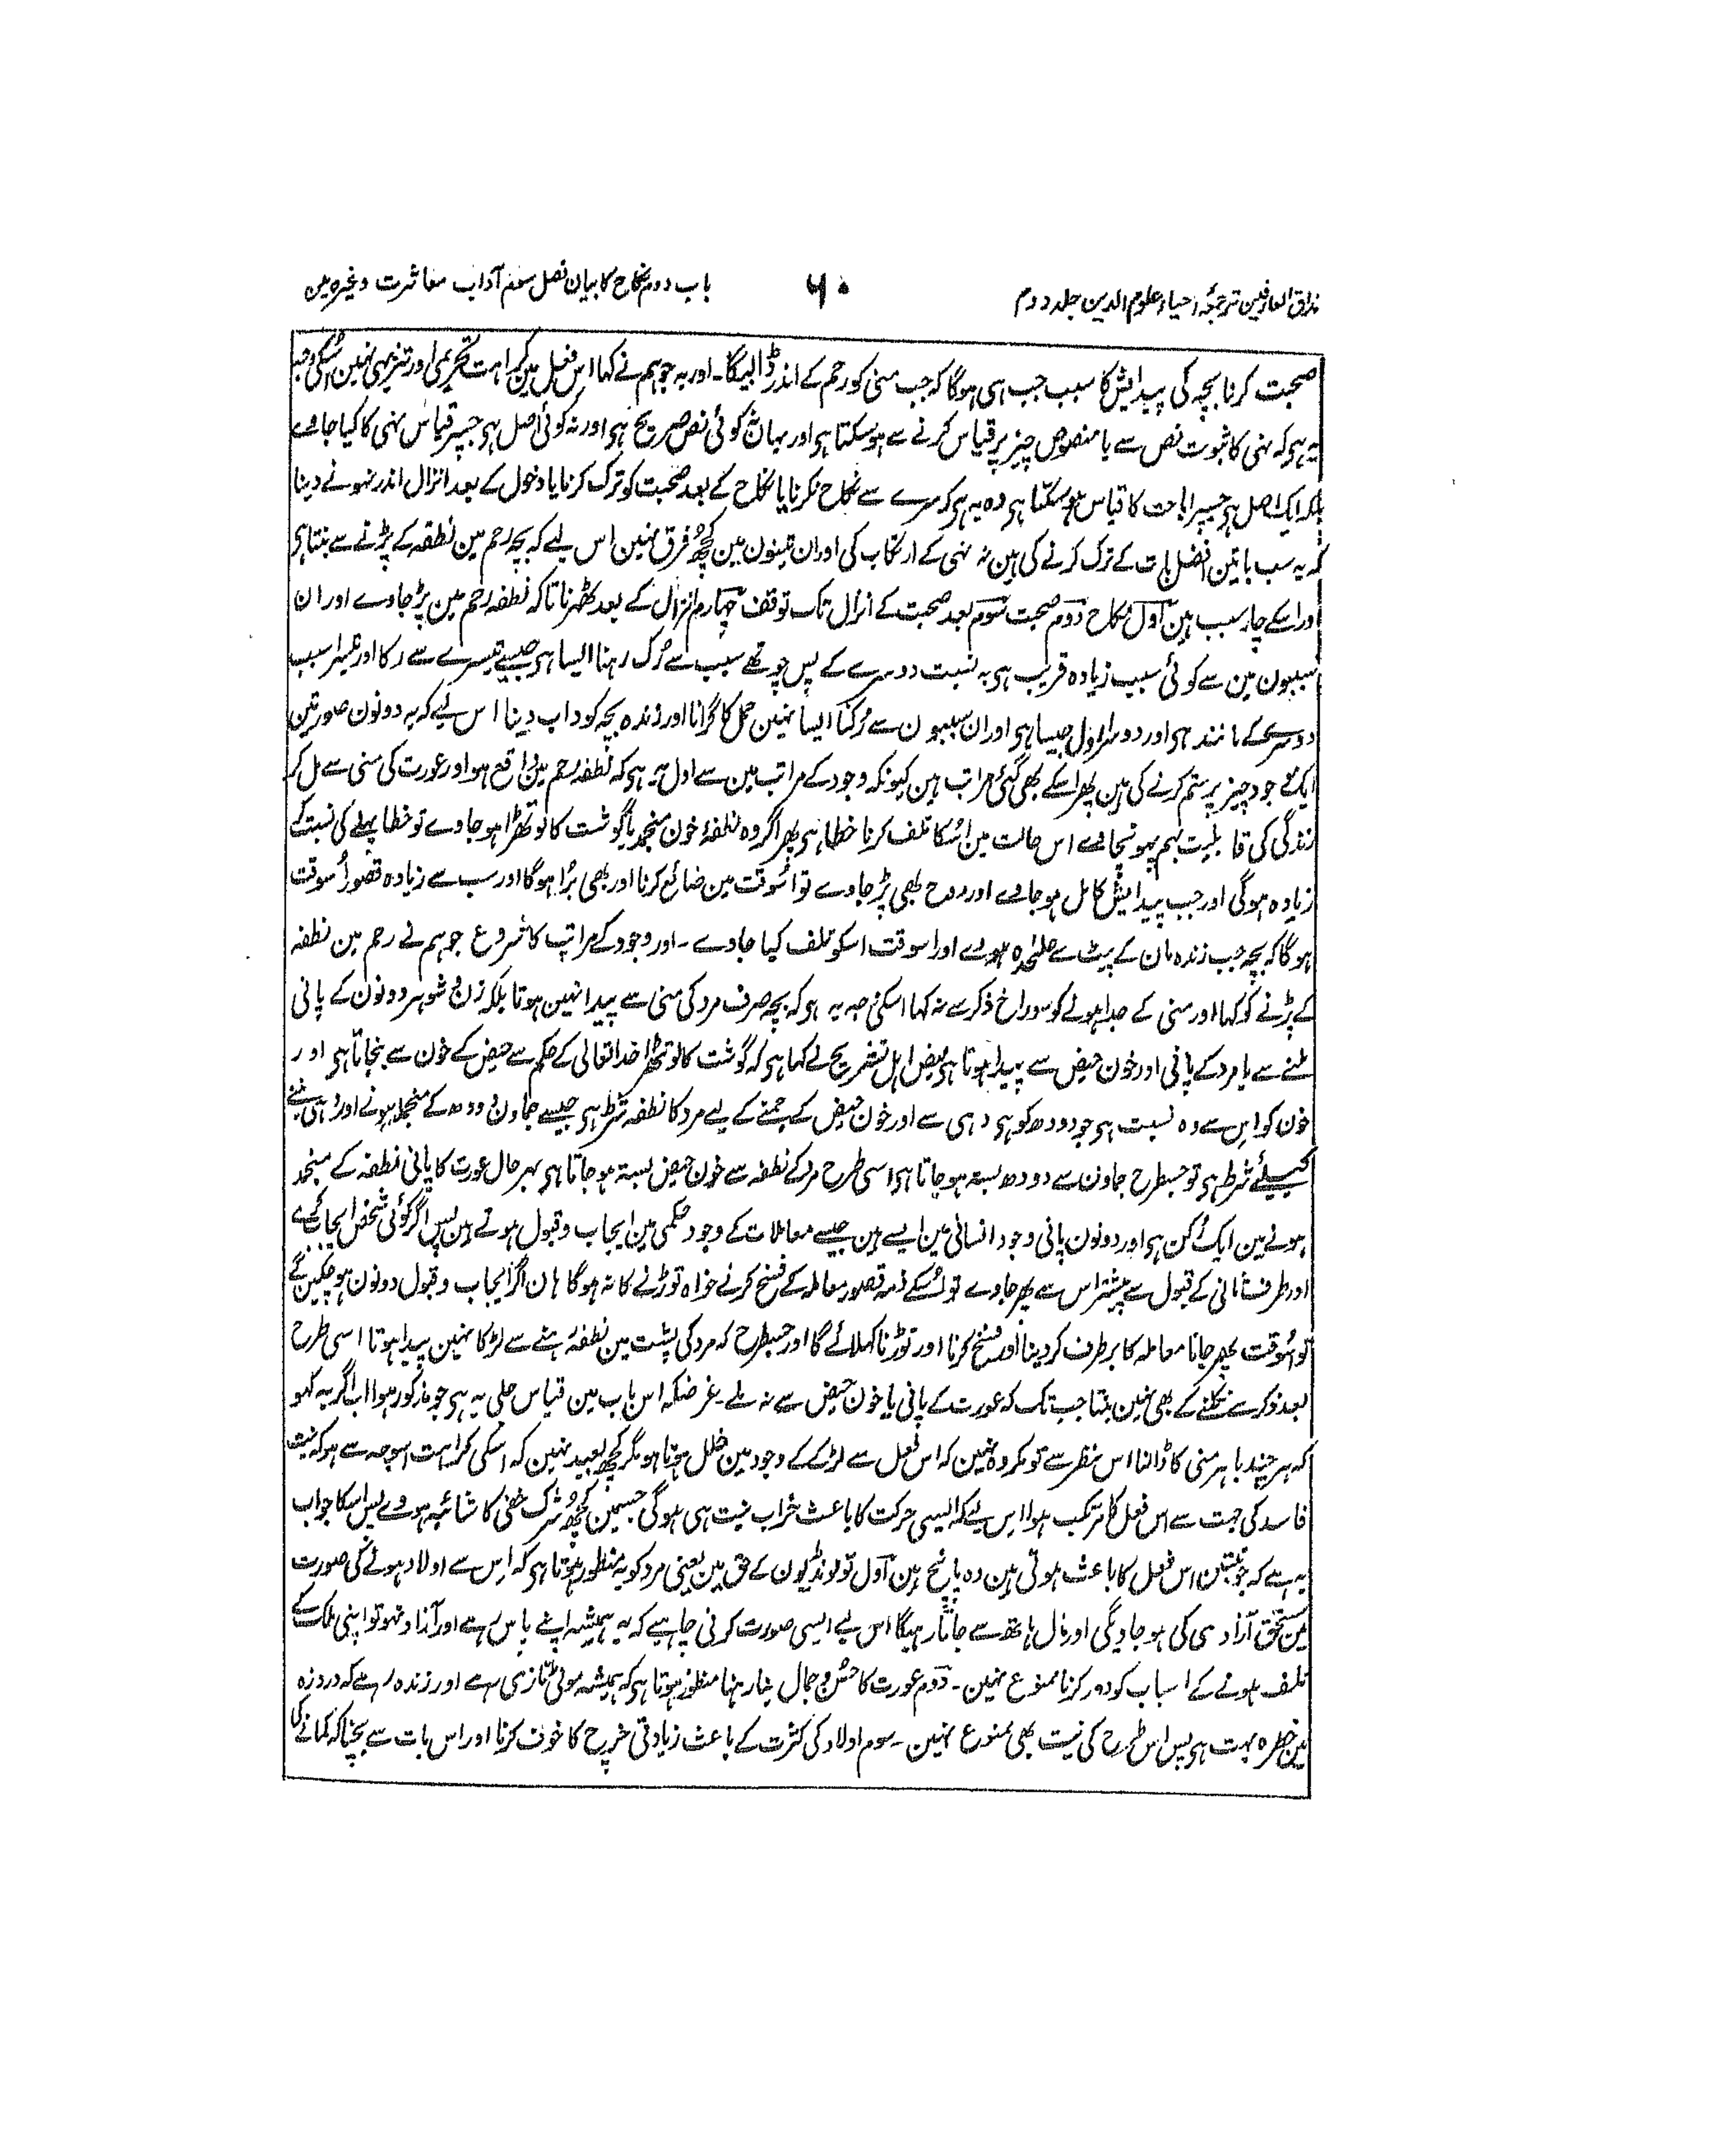 مذاق العارفین ترجمۂ احیاء علوم الدین جلد دوم
۶۰
باب دوم نکاح کا بیان فصل سوم آداب معاشرت وغیرہ مین
صحبت کرنا بچہ کی پیدایش کا سبب جب ہی ہوگا کہ جب منی کو رحم کے اندر ڈالیگا۔ اور یہ جو ہم نے کہا اس فعل مین کراہت تحریمی اور تنزیہی نہین اسکی وجہ
یہ ہی کہ نہی کا ثبوت نص سے یا منصوص چیز پر قیاس کرنے سے ہوسکتا ہی اور یہان نہ کوئی نص صریح ہی اور نہ کوئی اصل ہی جسپر قیاس نہی کا کیا جاوے
بلکہ ایک اصل ہی جسپر اباحت کا قیاس ہوسکتا ہی وہ یہ ہی کہ سرے سے نکاح نکرنا یا نکاح کے بعد صحبت کو ترک کرنا یا دخول کے بعد انزال اندر نہونے دینا
کہ یہ سب باتین افضل بات کے ترک کرنے کی ہین نہ نہی کے ارتکاب کی اور ان تینون مین کچھ فرق نہین اس لیے کہ بچہ رحم مین نطفہ کے پڑنے سے بنتا ہی
اور اسکے چار سبب ہین اول نکاح دوم صحبت سوم بعد صحبت کے انزال تک توقف چہارم انزال کے بعد ٹھہرنا تاکہ نطفہ رحم مین پڑ جاوے اور ان
سببون مین سے کوئی سبب زیادہ قریب ہی بہ نسبت دوسرے کے پس چوتھے سبب سے رک رہنا ایسا ہی جیسے تیسرے سے رکا اور تیسرا سبب
دوسرے کے مانند ہی اور دوسرا اول جیسا ہی اور ان سببون سے رکنا ایسا نہین حمل کا گرانا اور زندہ بچہ کو داب دینا اس لیے کہ یہ دونون صورتین
ایک موجود چیز پر ستم کرنے کی ہین پھر اسکے بھی کئی مراتب ہین کیونکہ وجود کے مراتب مین سے اول یہ ہی کہ نطفہ رحم مین واقع ہو اور عورت کی منی سے مل کر
زندگی کی قابلیت بہم پہونچاوے اس حالت مین اسکا تلف کرنا خطا ہی پھر اگر وہ نطفہ خون منجمد یا گوشت کا لوتھڑا ہو جاوے تو خطا پہلے کی نسبت کے
زیادہ ہوگی اور جب پیدایش کامل ہو جاوے اور روح بھی پڑ جاوے تو اسوقت مین ضائع کرنا اور بھی برا ہوگا اور سب سے زیادہ قصور اسوقت
ہوگا کہ بچہ جب زندہ مان کے پیٹ سے علحدہ ہووے اور اسوقت اسکو تلف کیا جاوے۔ اور وجود کے مراتب کا شروع جو ہم نے رحم مین نطفہ
کے پڑنے کو کہا اور منی کے جدا ہونے کو سوراخ ذکر سے نہ کہا اسکی وجہ یہ ہی کہ بچہ صرف مرد کی منی سے پیدا نہین ہوتا بلکہ زن و شوہر دونون کے پانی
ملنے سے یا مرد کے پانی اور خون حیض سے پیدا ہوتا ہی بعض اہل تشریح نے کہا ہی کہ گوشت کا لوتھڑا خدا تعالی کے حکم سے حیض کے خون سے بنجاتا ہی اور
خون کو اس سے وہ نسبت ہی جو دودھ کو ہی دہی سے اور خون حیض کے جمنے کے لیے مرد کا نطفہ شرط ہی جیسے جاون دودھ کے منجمد ہونے اور دہی بننے
کیلئے شرط ہی تو جسطرح جاون سے دودھ بستہ ہو جاتا ہی اسی طرح مرد کے نطفہ سے خون حیض بستہ ہو جاتا ہی بہر حال عورت کا پانی نطفہ کے منجمد
ہونے مین ایک رکن ہی اور دونون پانی وجود انسانی مین ایسے ہین جیسے معاملات کے وجود حکمی مین ایجاب و قبول ہوتے ہین پس اگر کوئی شخص ایجاب کرے
اور طرف ثانی کے قبول سے پیشتر اس سے پھر جاوے تو اسکے ذمہ قصور معاملہ کے فسخ کرنے خواہ توڑنے کا نہ ہوگا ہان اگر ایجاب و قبول دونون ہو چکین گے
تو اسوقت پھر جانا معاملہ کا برطرف کردینا اور فسخ کرنا اور توڑنا کہلائے گا اور جسطرح کہ مرد کی پشت مین نطفہ رہنے سے لڑکا نہین پیدا ہوتا اسی طرح
بعد ذکر سے نکلنے کے بھی نہین بنتا جب تک کہ عورت کے پانی یا خون حیض سے نہ ملے۔ غرضکہ اس باب مین قیاس جلی یہ ہی جو مذکور ہوا اب اگر یہ کہو
کہ ہر چند باہر منی کا ڈالنا اس نظر سے تو مکروہ نہین کہ اس فعل سے لڑکے کے وجود مین خلل ہوتا ہو مگر کچھ بعید نہین کہ اسکی کراہت اسوجہ سے ہو کہ نیت
فاسد کی جہت سے اس فعل کا مرتکب ہوا اس لیے کہ ایسی حرکت کا باعث خراب نیت ہی ہوگی جسمین کچھ شرک خفی کا شائبہ ہووے پس اسکا جواب
یہ ہے کہ جو نیتین اس فعل کا باعث ہوتی ہین وہ پانچ ہین اول تو لونڈیون کے حق مین یعنی مرد کو یہ منظور ہوتا ہی کہ اس سے اولاد ہونے کی صورت
مین مستحق آزادی کی ہو جاویگی اور مال ہاتھ سے جاتا رہیگا اس لیے ایسی صورت کرنی چاہیے کہ یہ ہمیشہ اپنے پاس رہے اور آزاد نہو تو اپنی ملک کے
تلف ہونے کے اسباب کو دور کرنا ممنوع نہین۔ دوم عورت کا حسن و جمال بنا رہنا منظور ہوتا ہی کہ ہمیشہ موٹی تازی رہے اور زندہ رہے کہ درد زہ
مین خطرہ بہت ہی پس اس طرح کی نیت بھی ممنوع نہین۔ سوم اولاد کی کثرت کے باعث زیادتی خرچ کا خوف کرنا اور اس بات سے بچنا کہ کمانے کی